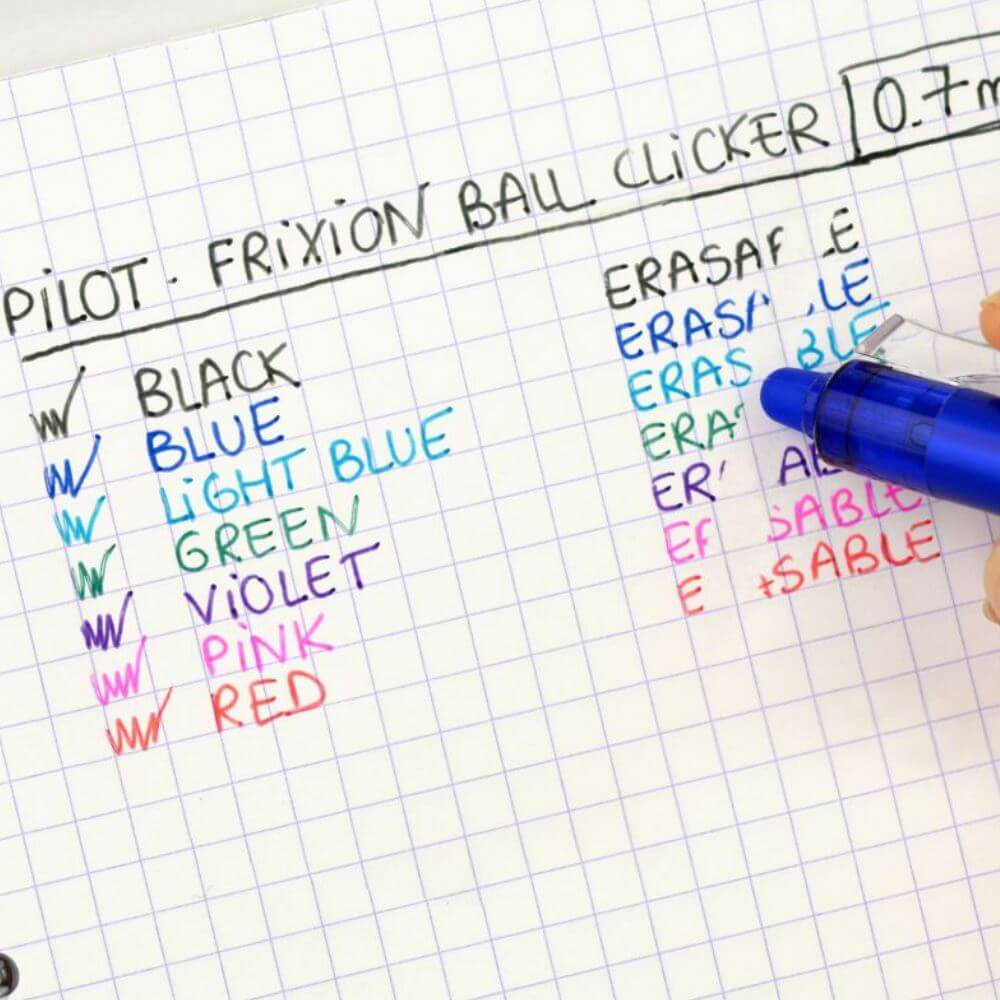 PiLOT · FRiXiON BALL CLiCKER 0.7m
BLACK
BLUE
LiGHT BLUE
GREEN
ViOLET
PiNK
RED
ERASA E
ERASA LE
ERAS BLE
ERA
ER AB
E SABLE
E SABLE